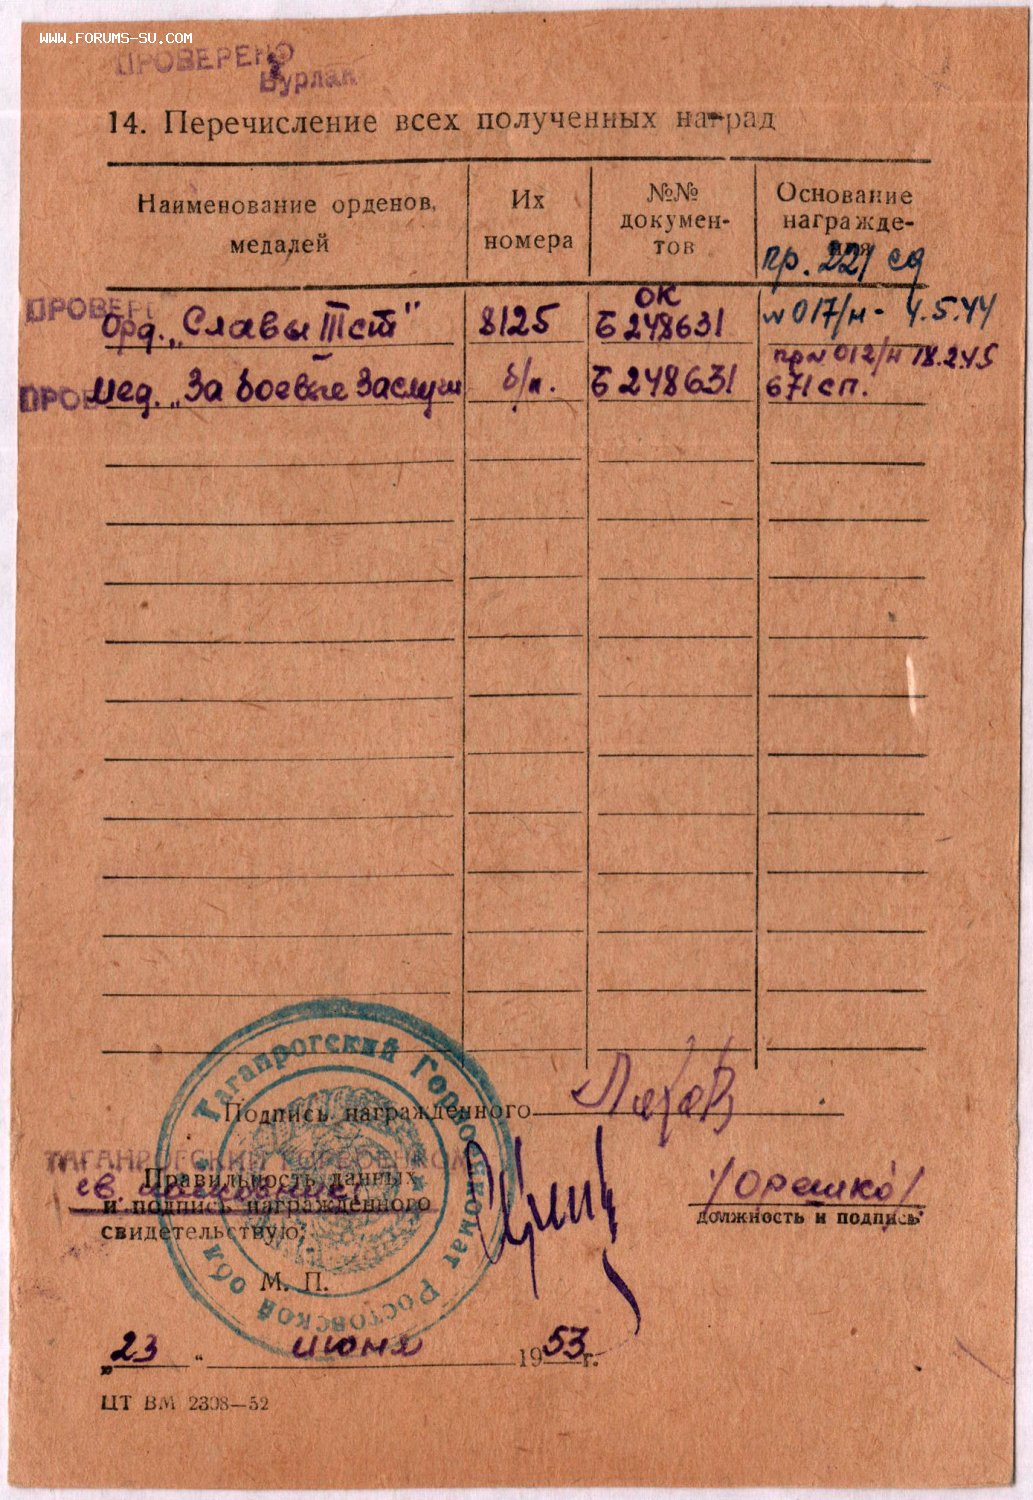 WWW.FORUMS-SU.COM
ПРОВЕРЕНО
Бурлак
14. Перечисление всех полученных наград
Наименование орденов, медалей
Их номера
№№ докумен-тов
Основание награжде-ния
пр. 221 сд
ПРОВЕРЕ
Орд. „Славы III ст"
8125
ОК
Б 248631
№ 017/н - 4.5.44
ПРОВ
Мед. „За боевые Заслуги
б/н.
Б 248631
пр № 012/н 18.2.45
671 сп.
Подпись награжденного
ТАГАНРОГСКИЙ ГОРВОЕНКОМ
Правильность данных
и подпись награжденного
свидетельствую:
/Орешко/
должность и подпись
М. П.
Таганрогский Горвоенкомат Ростовской обл
„23" июня 1953 г.
ЦТ ВМ 2308—52